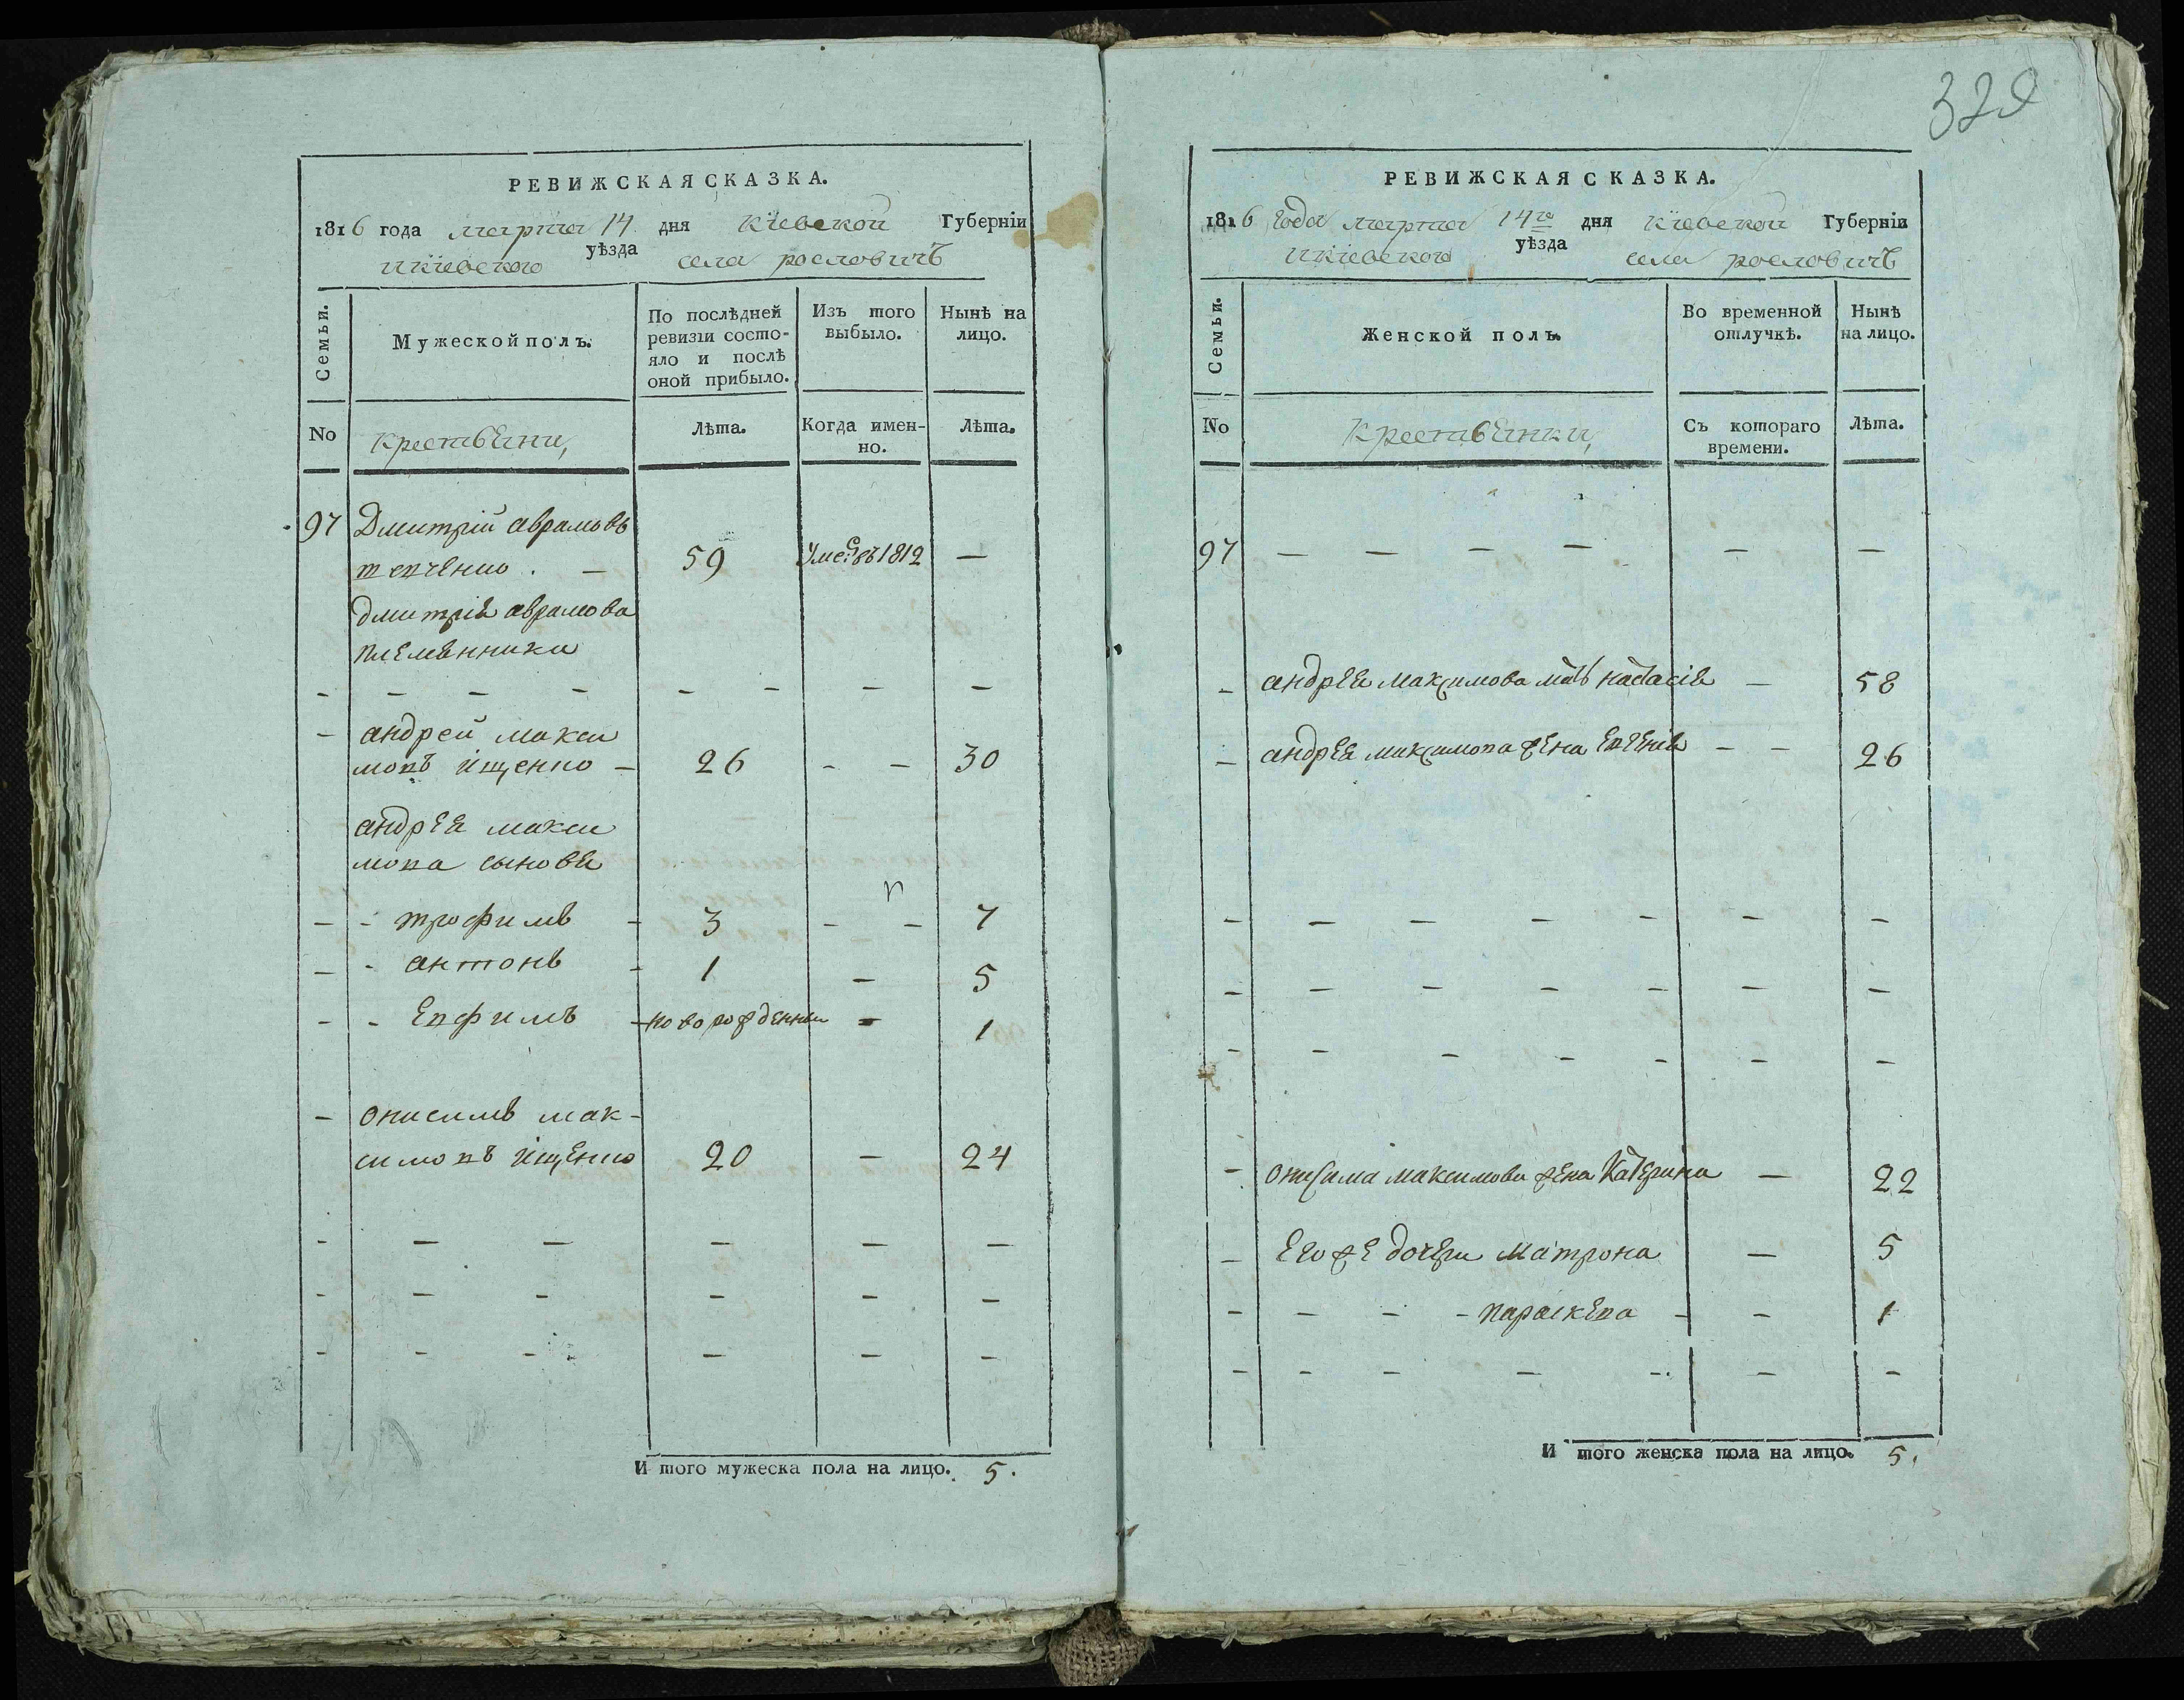 329
РЕВИЖСКАЯ СКАЗКА.
1816 года марта 14 дня кіевской Губерніи
икіевского уѣзда села рословичъ
Семьи.
Мужеской полъ.
По послѣдней
ревизіи состо-
яло и послѣ
оной прибыло.
Изъ того
выбыло.
Нынѣ на
лицо.
No
крестьяни,
Лѣта.
Когда имен-
но.
Лѣта.
97 Дмитрій аврамовъ
59 Умеръ 1812 —
дмитрія аврамова
племянники
- - - - - - - -
- андрей макси
мовъ ищенко — 26 - — 30
андрея макси
мова сынове
— - трофимъ - 3 - - 7
— - антонъ - 1 — 5
- - Евфимъ - новорожденны — 1
— онисимъ мак-
симовъ ищенко 20 — 24
- — — — — —
- — - — — —
- - - — — —
И того мужеска пола на лицо. 5.
РЕВИЖСКАЯ СКАЗКА.
1816 года марта 14го дня кіевской Губерніи
икіевского уѣзда села рословичъ
Семьи.
Женской полъ.
Во временной
отлучкѣ.
Нынѣ
на лицо.
No
Крестьянки,
Съ котораго
времени.
Лѣта.
97 — — — — — —
- андрея максимова мать настасія — 58
- андрея максимова жена Евгенія - - 26
- — — — - — —
- — — — — — —
- — — — - — —
- онисима максимова жена Катерина — 22
- Его же дочери матрона — 5
- — — - параскева - — 1
- - — — - — —
И того женска пола на лицо. 5.